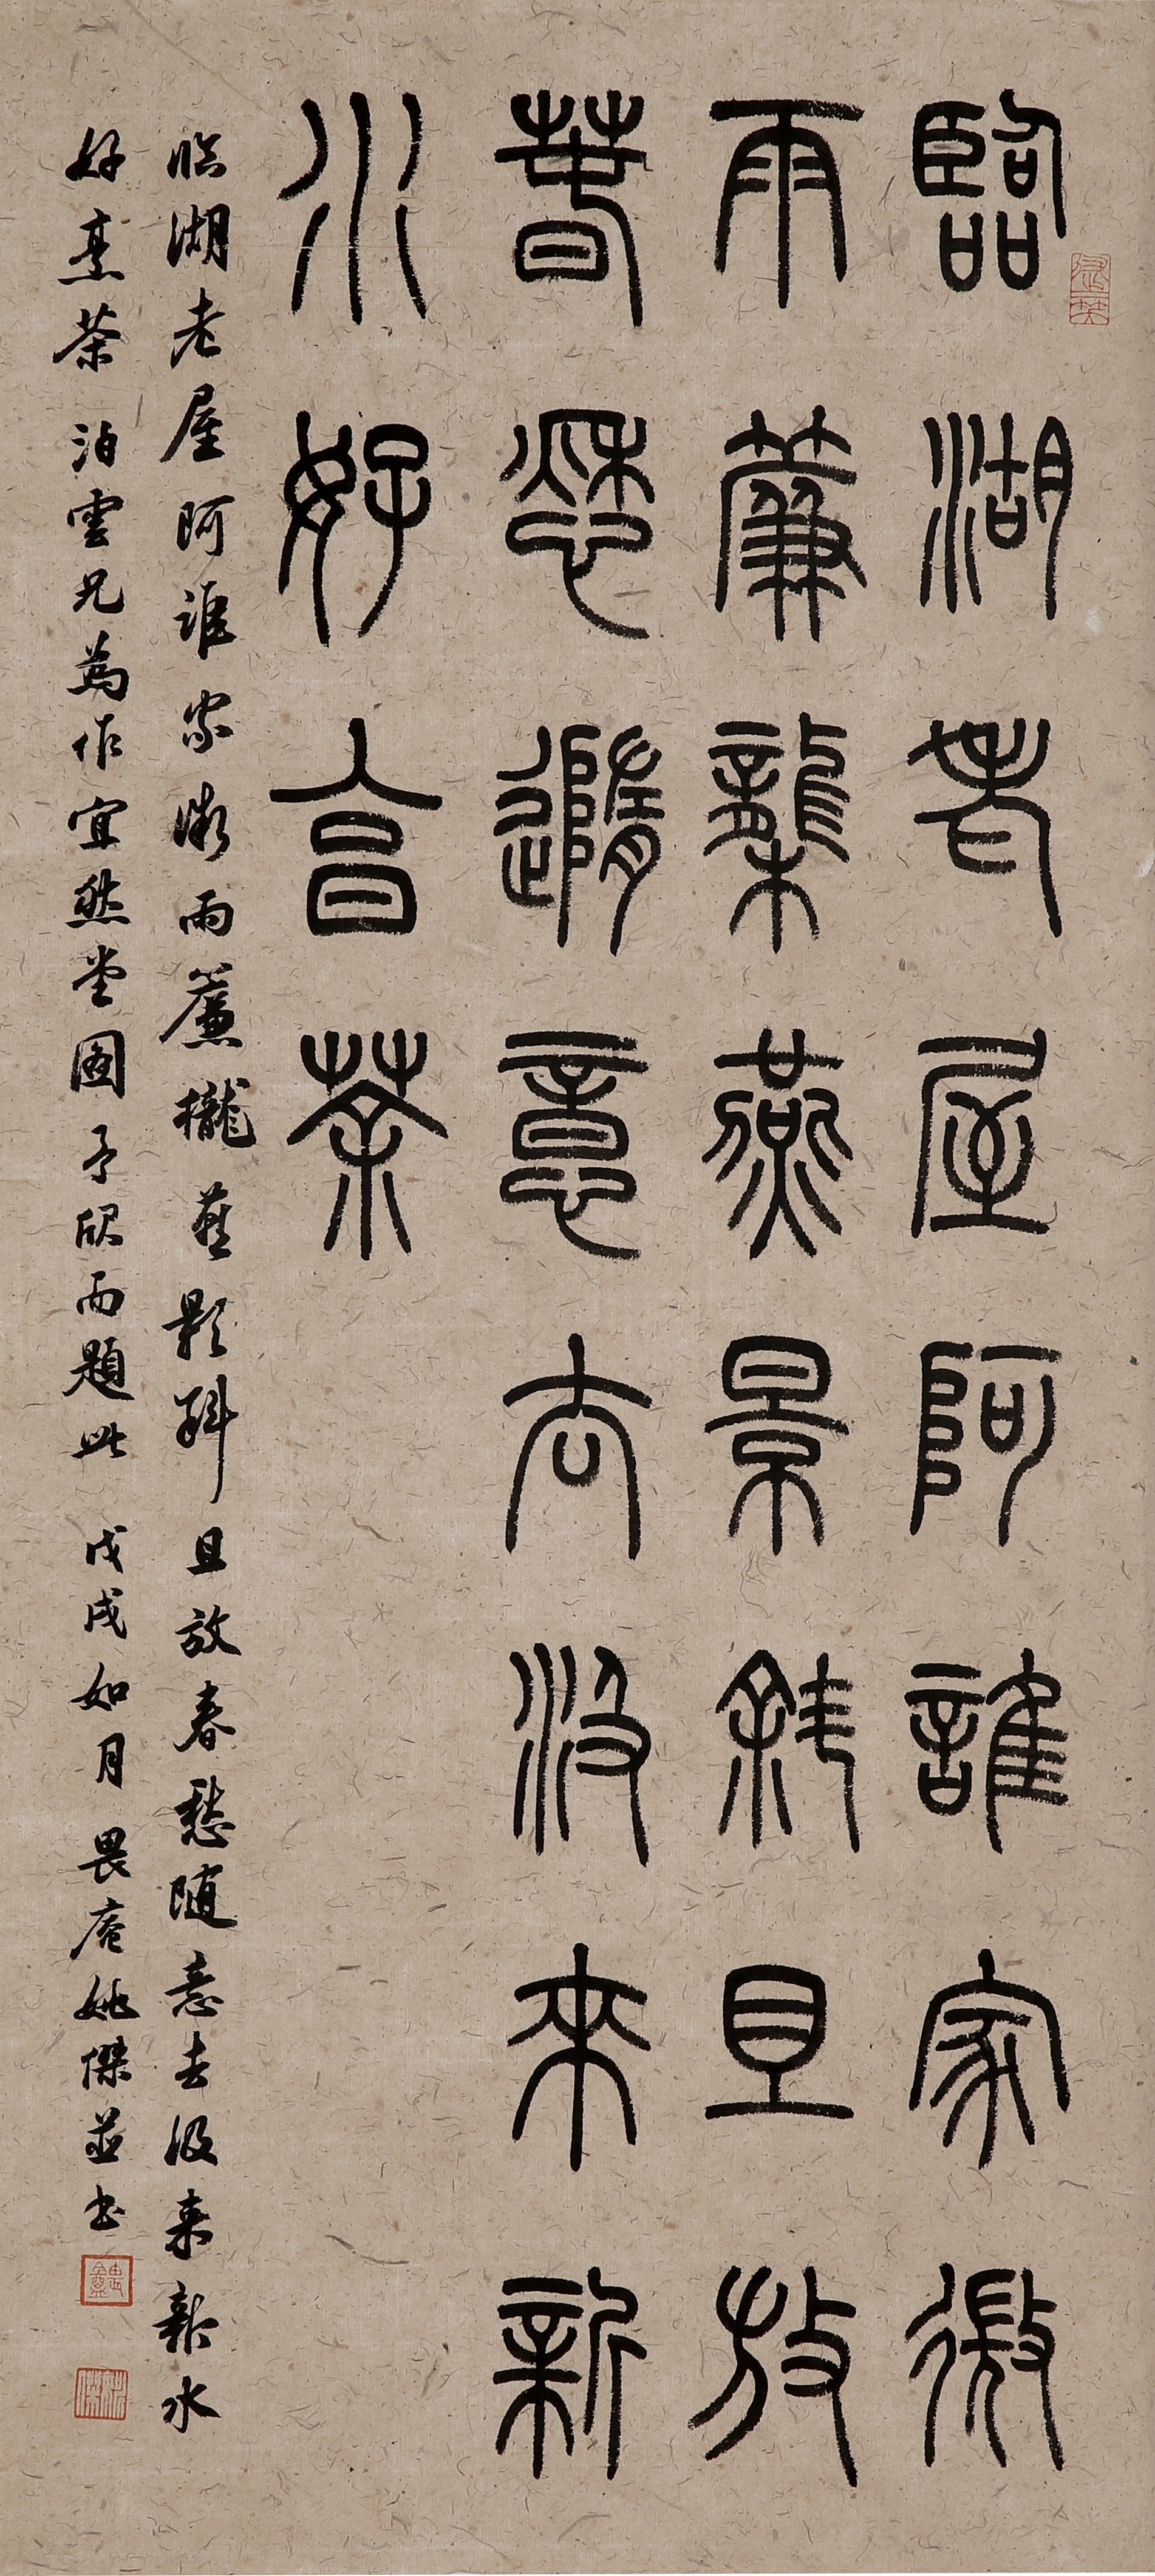 臨湖老屋阿誰家微
雨簾櫳燕景斜且放
春愁隨意去汲來新
水好亯茶
临湖老屋阿誰家微雨簾櫳燕影斜且放春愁随意去汲来新水
好烹茶 泊雲兄為作宜然堂圖 予欣而題此 戊戌如月 畏庵姚傑並书